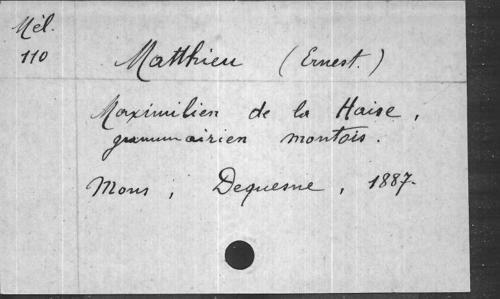 Mél.
110
Matthieu (Ernest.)
Maximilien de la Haise,
grammairien montois.
Mons, Dequesne, 1887.